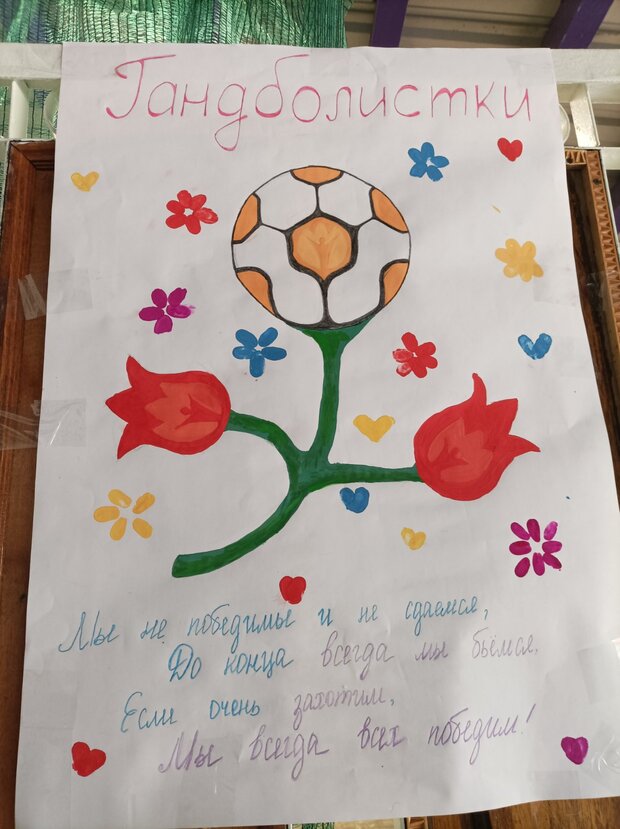 Гандболистки
Мы не победимы и не сдаемся,
До конца всегда мы бьёмся.
Если очень захотим,
Мы всегда всех победим!